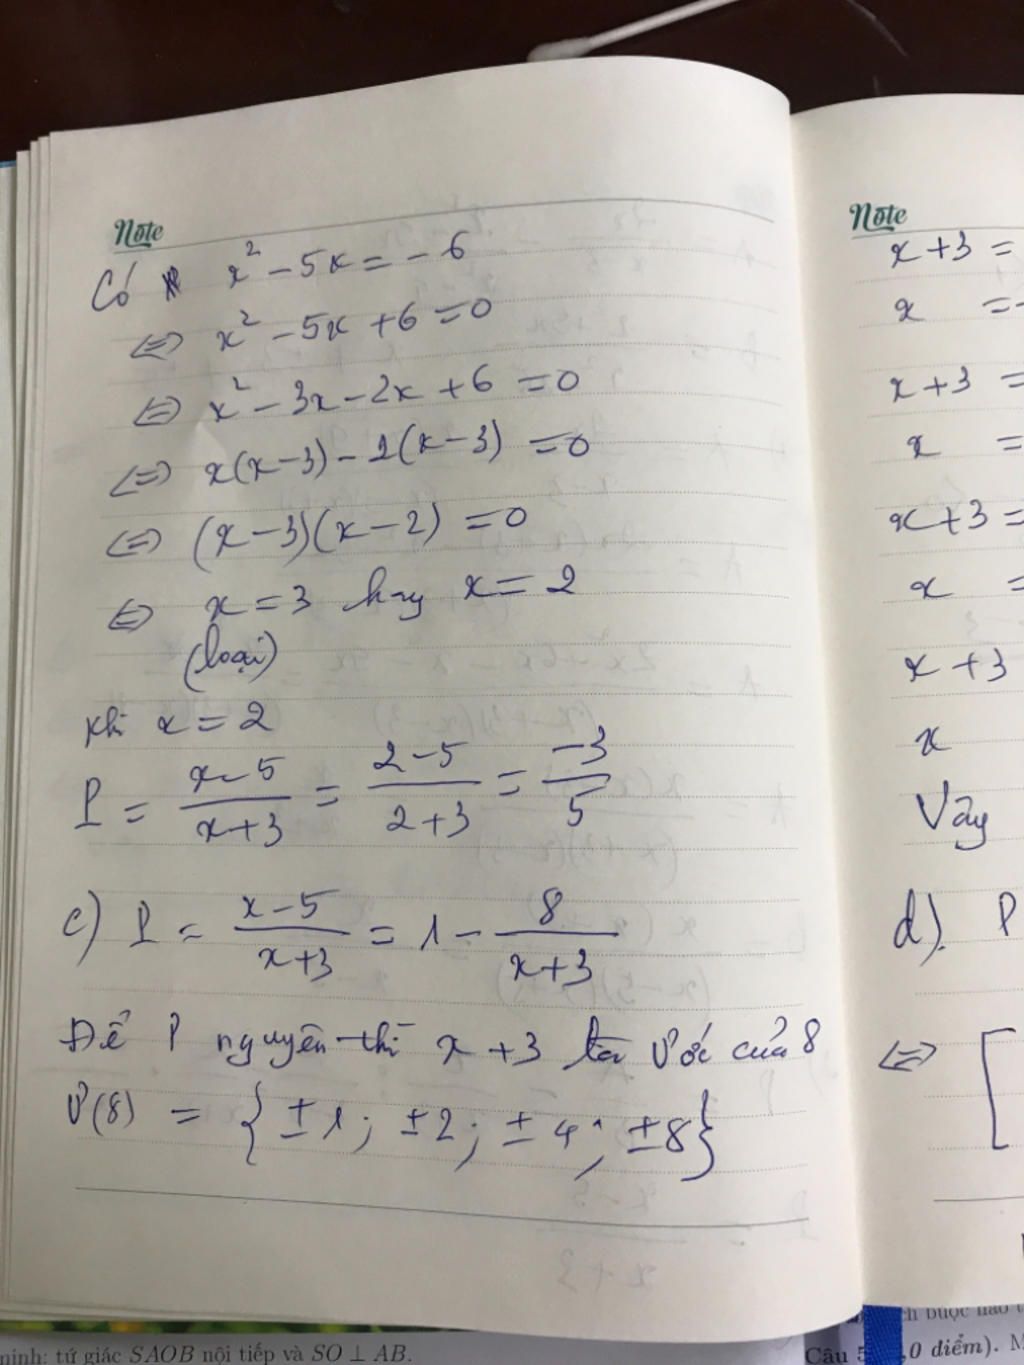 Note
Có x² - 5x = -6
⇔ x² - 5x + 6 = 0
⇔ x² - 3x - 2x + 6 = 0
⇔ x(x-3) - 2(x-3) = 0
⇔ (x-3)(x-2) = 0
⇔ x = 3 hay x = 2
(loại)
Khi x = 2
P = (x-5)/(x+3) = (2-5)/(2+3) = -3/5
c) P = (x-5)/(x+3) = 1 - 8/(x+3)
Để P nguyên thì x+3 là Ước của 8
Ư(8) = {±1; ±2; ±4; ±8}
Note
x+3 =
x = -
x+3 =
x =
x+3 =
x =
x+3
x
Vây
d). P
⇔ [
minh: tứ giác SAOB nội tiếp và SO ⊥ AB.
buộc nào
Câu 5 ,0 điểm). M